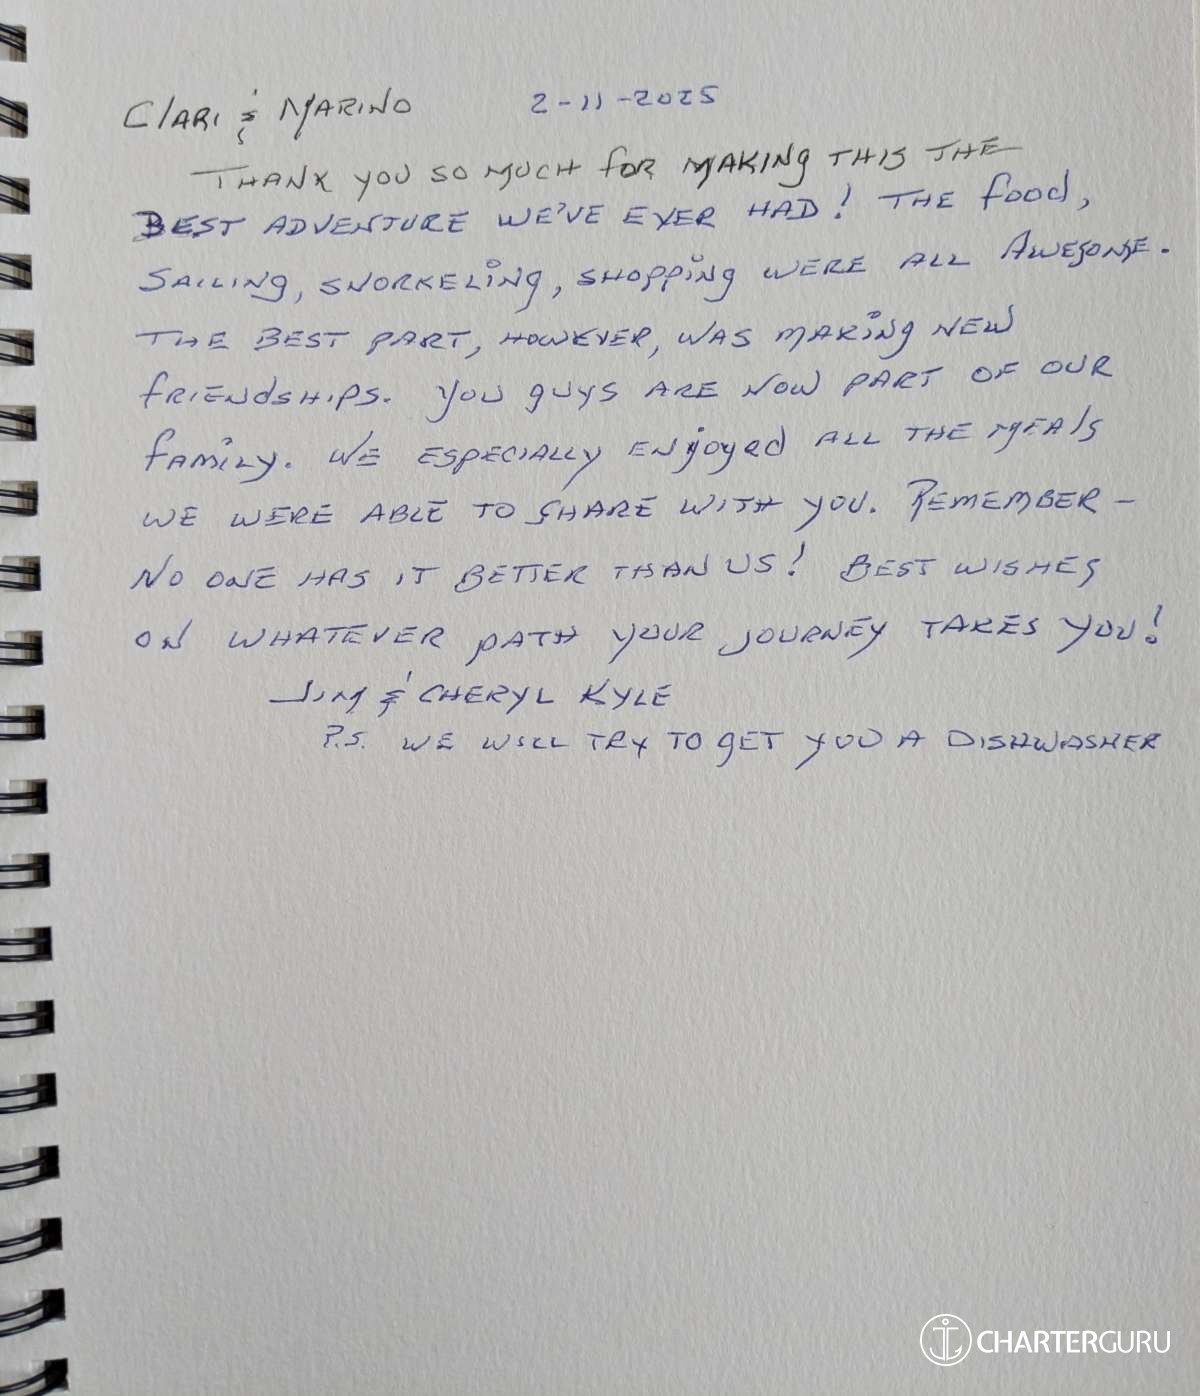 Clari & Marino 2-11-2025
Thank you so much for making this the
best adventure we've ever had! The food,
sailing, snorkeling, shopping were all awesome.
The best part, however, was making new
friendships. You guys are now part of our
family. We especially enjoyed all the meals
we were able to share with you. Remember –
no one has it better than us! Best wishes
on whatever path your journey takes you!
Jim & Cheryl Kyle
P.S. We will try to get you a dishwasher
CHARTERGURU